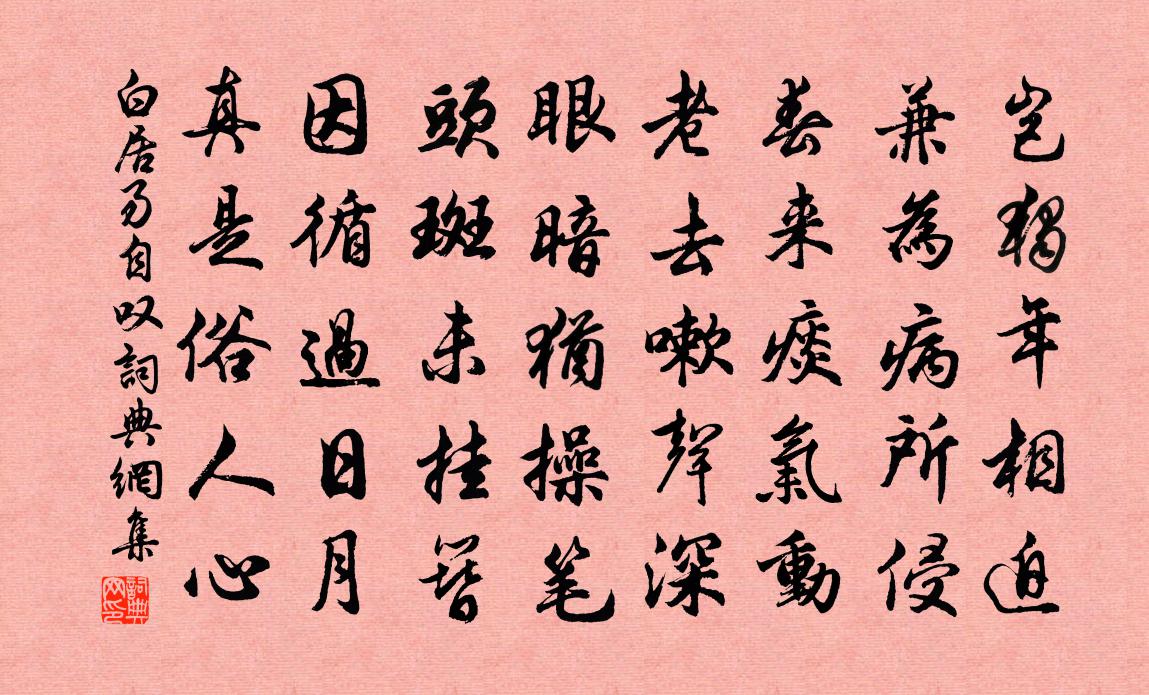 豈獨年相迫
兼為病所侵
春來痰氣動
老去嗽聲深
眼暗猶操笔
頭斑未挂簪
因循過日月
真是俗人心
白居易自叹詞典網集
詞典网印